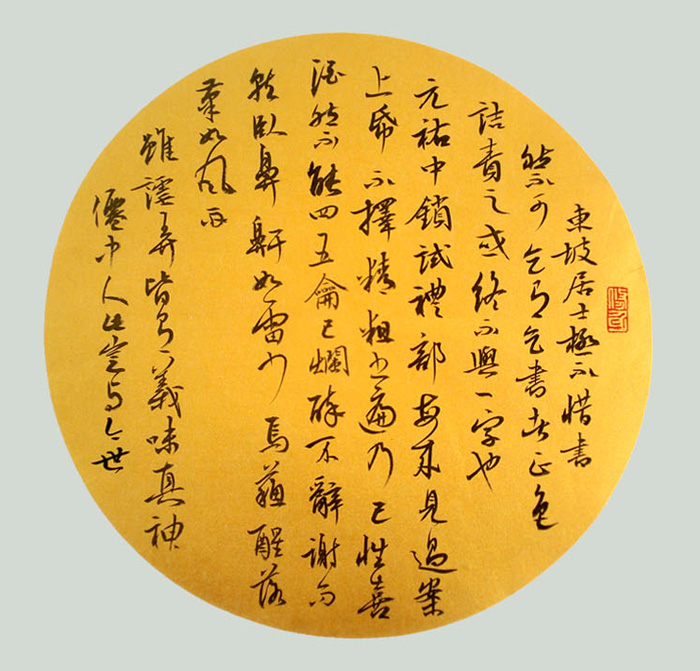 東坡居士極不惜書
然不可乞有乞書者正色
詰責之或終不與一字也
元祐中鎖試禮部每來見過案
上帋不擇精粗書遍乃已性喜
酒然不能四五龠已爛醉不辭謝而
就臥鼻鼾如雷少焉蘇醒落
筆如風雨
雖謔弄皆有義味真神
僊中人此豈与今世